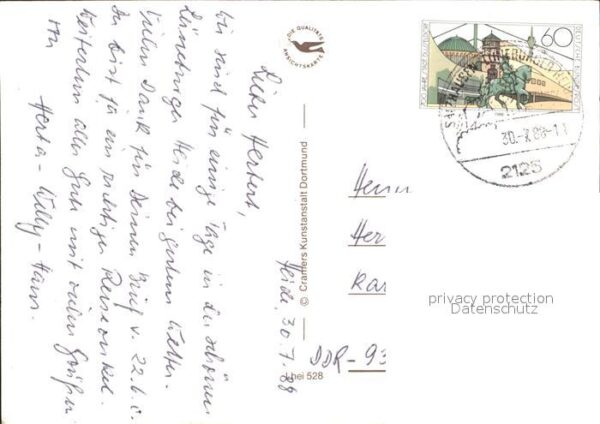 Heide, 30.7.88
Lieber Herbert,
wir sind für einige Tage in der schönen
Lüneburger Heide bei gutem Wetter.
Vielen Dank für Deinen Brief v. 22.6. u.
Du bist ja ein richtiger Reiseonkel.
Weiterhin alles Gute mit vielen Grüßen
von
Herta - Willy - Hans.
DIE QUALITÄTS
ANSICHTSKARTE
© Cramers Kunstanstalt Dortmund
Lhei 528
60
DEUTSCHE BUNDESPOST
700 JAHRE STADT DÜSSELDORF
30.-7.88-11
2125
Herrn
Her
Kar
DDR-93
privacy protection
Datenschutz